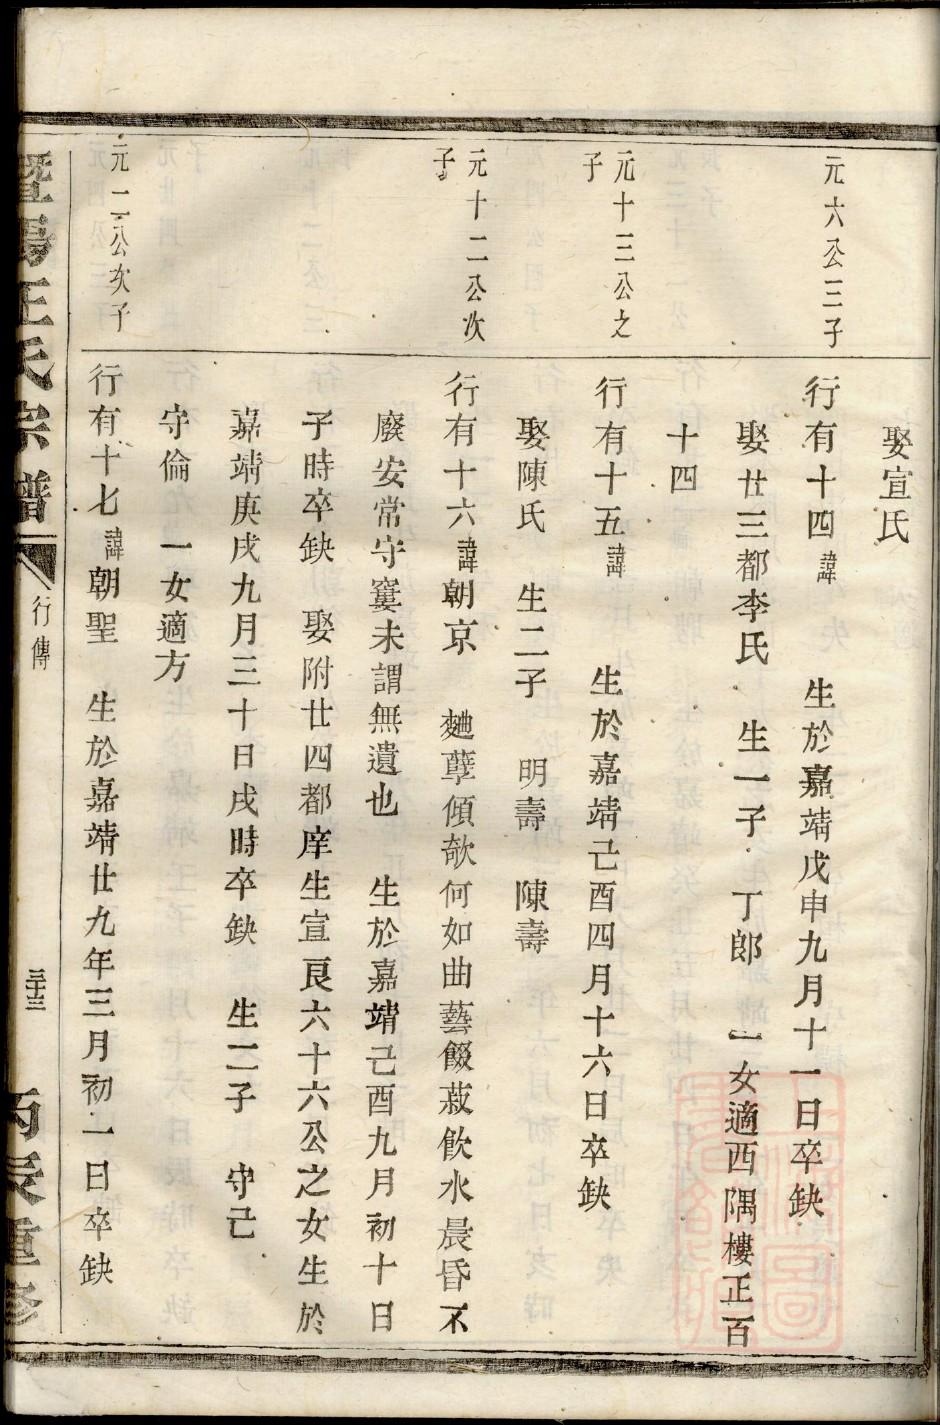 娶宣氏
元六公三子
行有十四諱 生於嘉靖戊申九月十一日卒缺
娶廿三都李氏 生一子 丁郎 一女適西隅樓正百
十四
元十三公之
子
行有十五諱 生於嘉靖己酉四月十六日卒缺
娶陳氏 生二子 明壽 陳壽
元十二公次
子
行有十六諱朝京 麯孽傾欹何如曲藝餟菽飲水晨昏不
廢安常守窶未謂無遺也 生於嘉靖己酉九月初十日
子時卒缺 娶附廿四都庠生宣良六十六公之女生於
嘉靖庚戌九月三十日戌時卒缺 生二子 守己
守倫 一女適方
元一公次子
行有十七諱朝聖 生於嘉靖廿九年三月初一日卒缺
暨陽王氏宗譜 行傳 三十三 丙辰重修